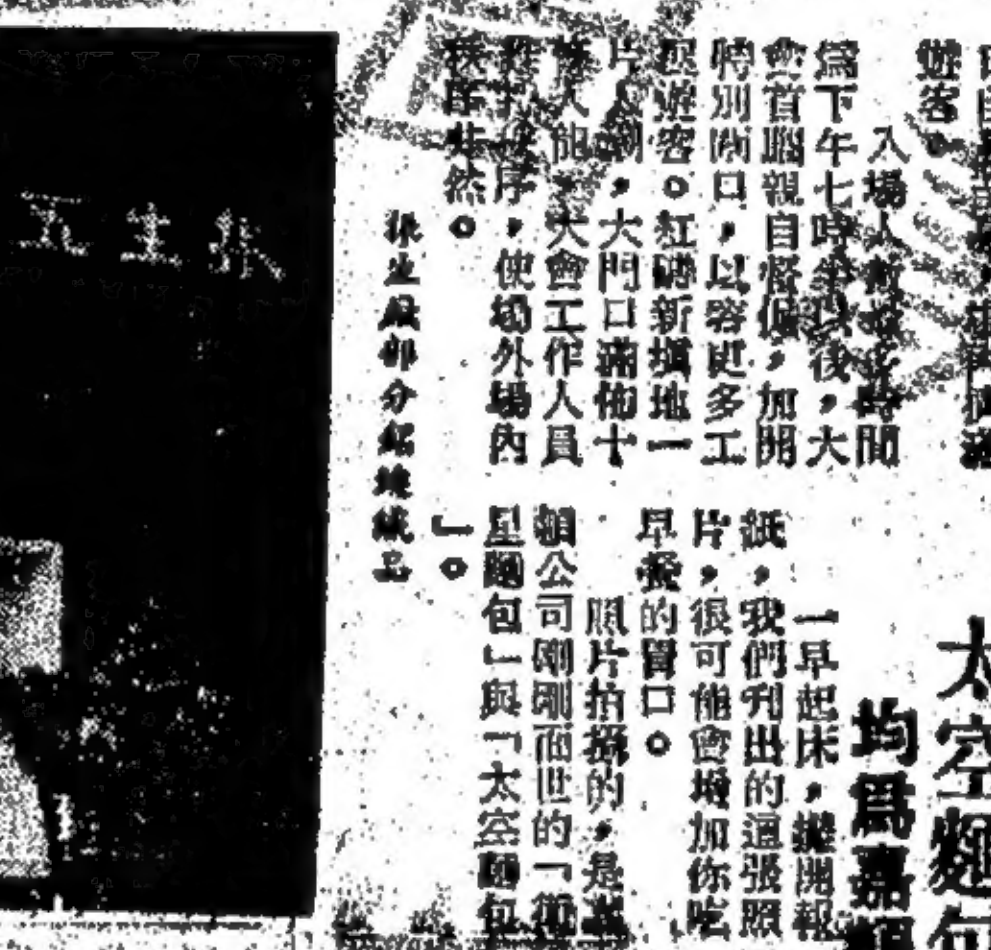 遊客。
入場人數最多時間
爲下午七時半以後,大
會首腦親自督,加開
特別閘口,以容更多工
展遊客。紅磚新填地一
片人潮,大門口滿佈十
人龍,大會工作人員
序,使場外場內
秩序井然。
部分
太空麵包
均爲嘉頓
一早起床,攤開報
紙,我們刊出的這張照
片,很可能會增加你吃
早餐的胃口。
照片拍攝的,是嘉
頓公司剛剛面世的「衛
星麵包」與「太空麵包
」。